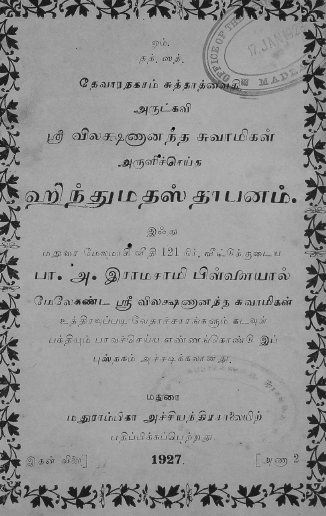 ஓம்.
தத், ஸத்.
தேவாரதகாம் சுத்தாத்வைதி
அருட்கவி
ஸ்ரீ விலக்ஷணானந்த சுவாமிகள்
அருளிச்செய்த
ஹிந்துமதஸ்தாபனம்.
இஃது
மதுரை மேலமாசி வீதி 121 ம், வீட்டுடைய
பா. அ. இராமசாமி பிள்ளையால்
மேலேகண்ட ஸ்ரீ விலக்ஷணானந்த சுவாமிகள்
உத்திரவுப்படி வேதாச்சாரங்களும் கடவுள்
பக்தியும் பரவச்செய்ய எண்ணங்கொண்டு இப்
புஸ்தகம் அச்சடிக்கலானது.
மதுரை
மதுராம்பிகா அச்சியந்திரசாலையிற்
பதிப்பிக்கப்பெற்றது.
இதன் விலை] 1927. [அணா 2
OFFICE OF THE
17 JAN 192